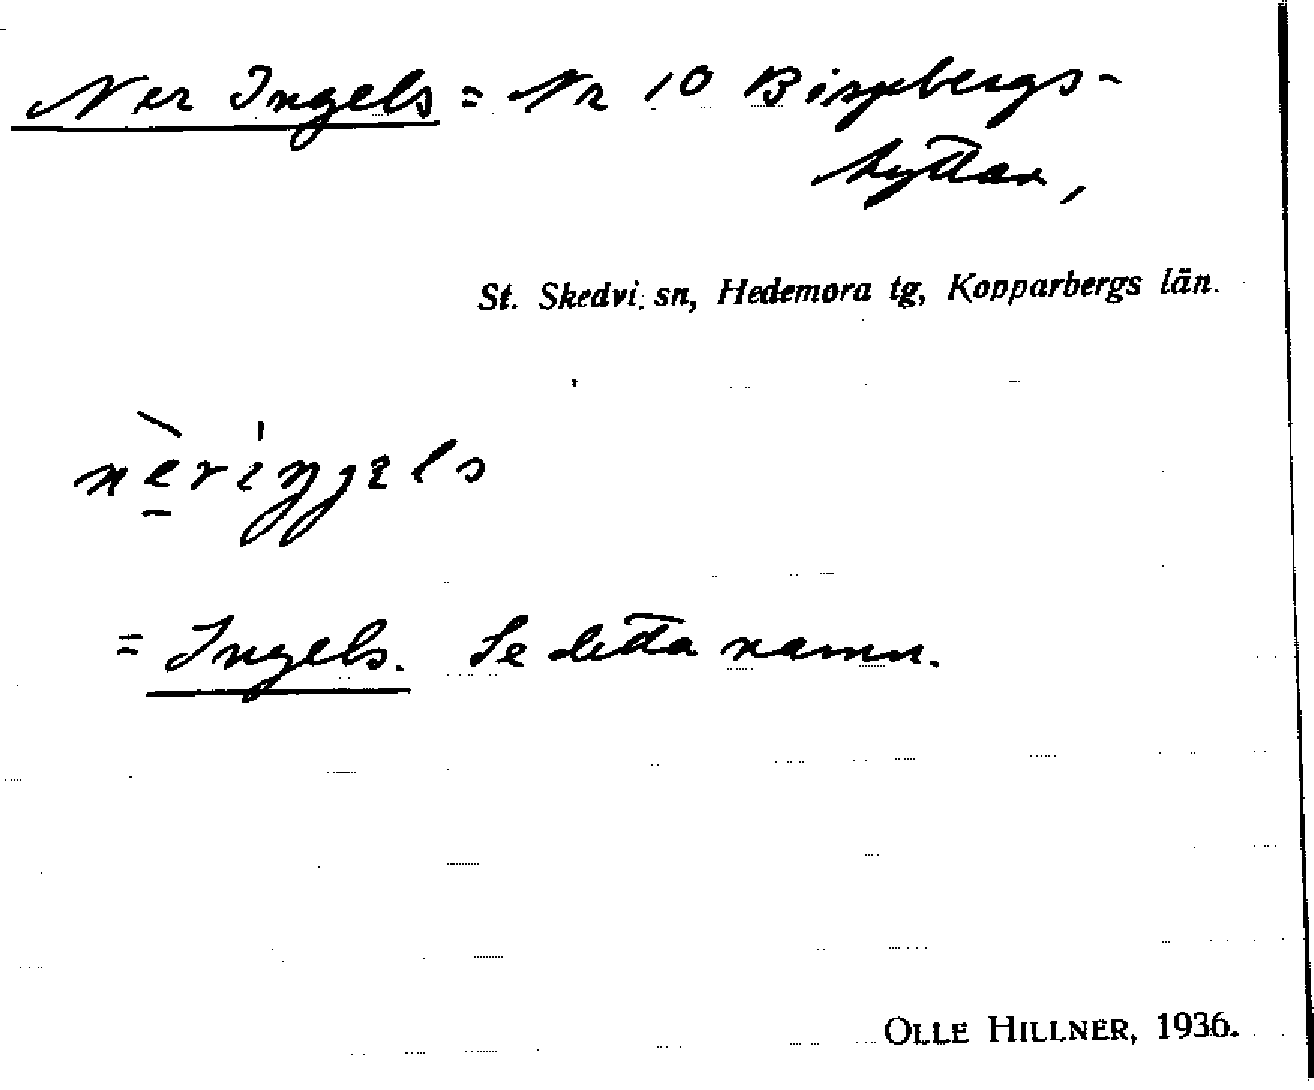 Ner Ingels = Nr 10 Bispbergs-
hyttan,
St. Skedvi sn, Hedemora tg, Kopparbergs län.
nè̠ri̍ŋgəls
= Ingels. Se detta namn.
OLLE HILLNER, 1936.